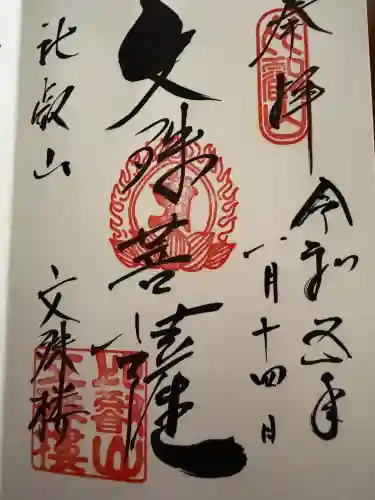 奉拝
令和五年
八月十四日
文殊菩薩
比叡山
文殊楼
比叡山
文殊樓